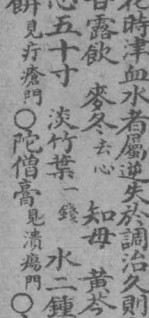 花時津血水者屬逆失於調治久則
甘露飲　麥冬去心　知母　黃芩
心五十寸　淡竹葉一錢　水二鍾
餅見疔瘡門○陀僧膏見潰瘍門○